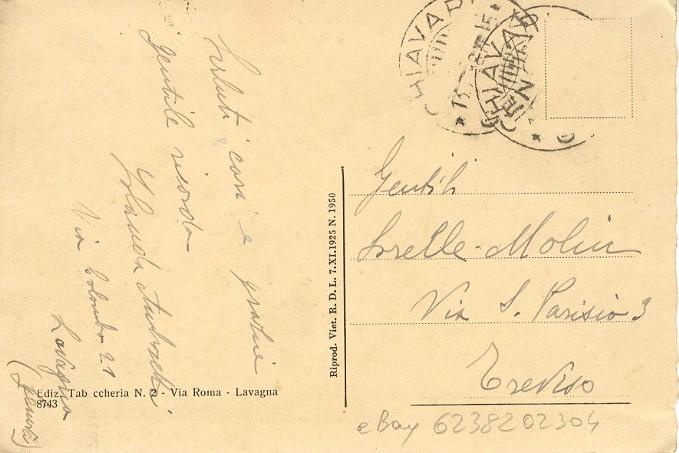 CHIAVARI
CHIAVARI
Saluti cari e
gentile ricordo
Via Colombo 21
Lavagna
Gentili
Sorelle Molin
Via S. Parisio 3
Treviso
Riprod. Viet. R. D. L. 7.XI.1925 N. 1950
Ediz. Tab ccheria N. 2 - Via Roma - Lavagna
8743
eBay 6238202304